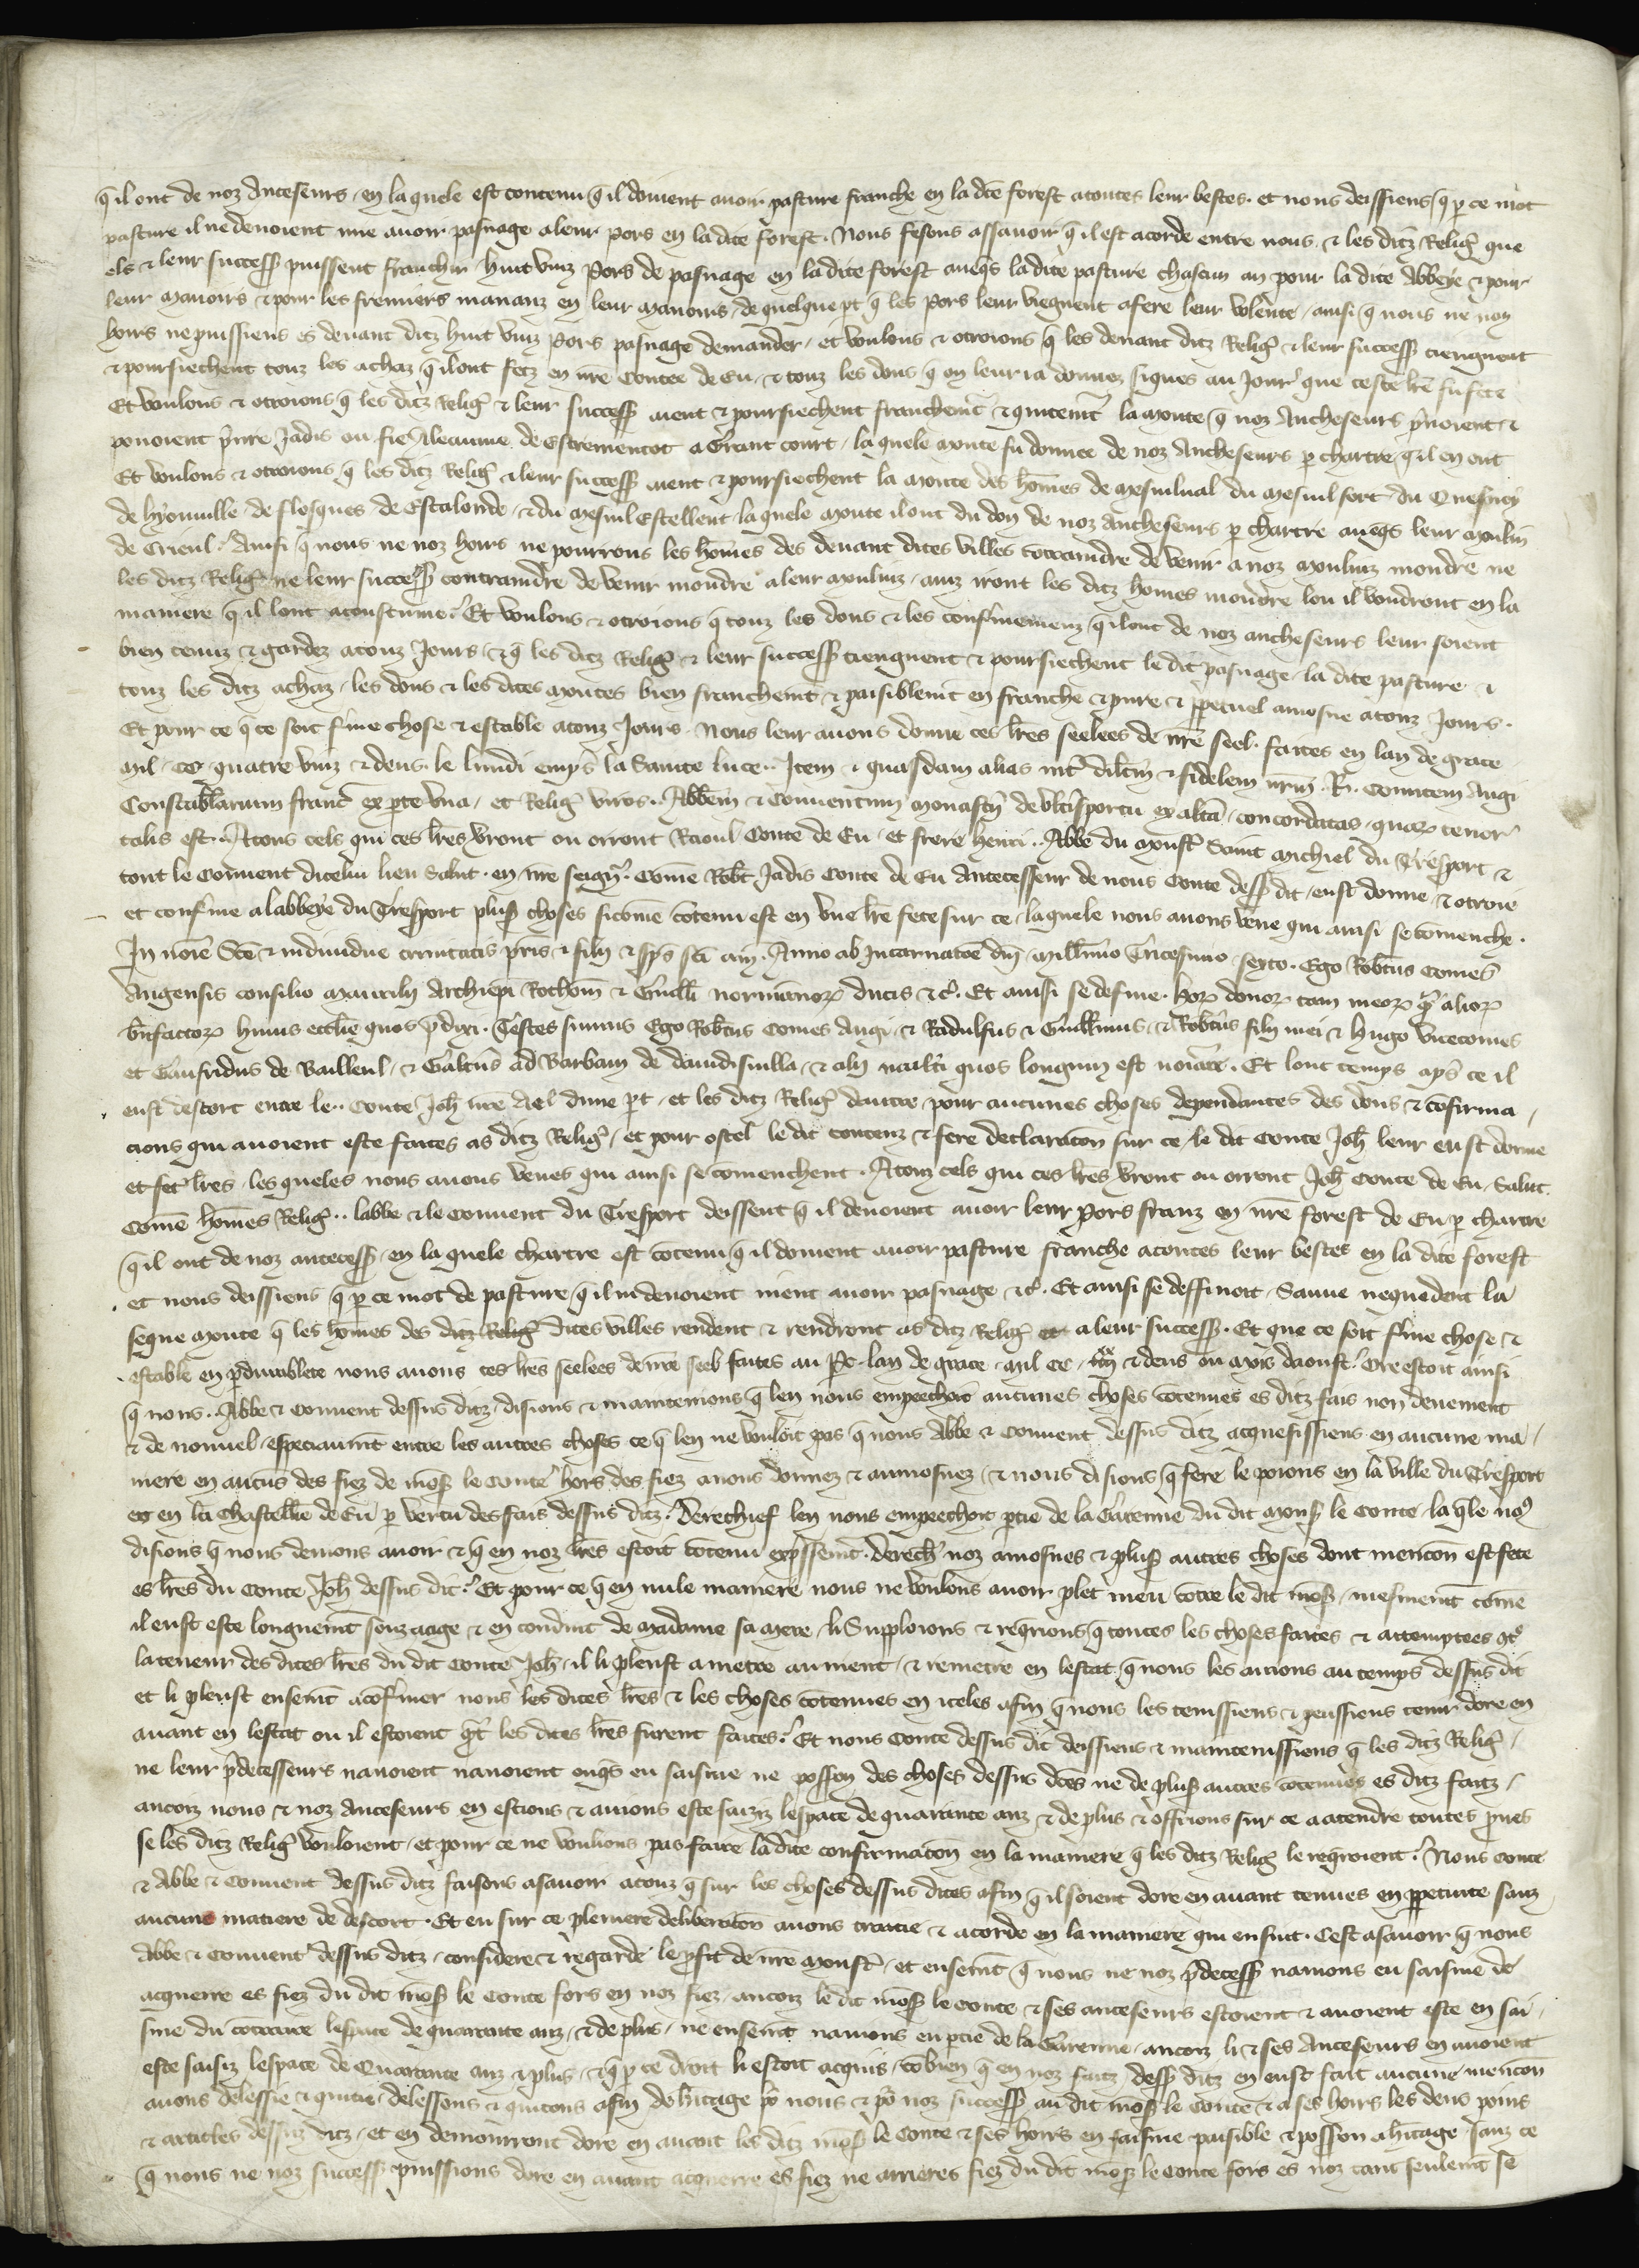 qil ont de noz Ancesseurs, en la quele est contenu qil doivent avoir pasture franche en la dce forest a toutes leur bestes. et nous deissiens q p ce mot
pasture il ne devoient mie avoir pasnage a leur pors en la dite forest. Nous fesons assavoir q il est acorde entre nous, & les ditz Relig que
els & leur success puissent franchir huit vinz Pors de pasnage en la dite forest aveqs la dite pasture chascun an pour la dite Abbeye & pour
leur Manoirs & pour les fremiers mananz en leur Manoirs, de quelque pt q les Pors leur viegnent a fere leur volente, ainsi q nous ne noz
hoirs ne puissiens es devant ditz huit vinz Pors pasnage demander, et voulons & otroions q les devant ditz Relig & leur success tiengnent
& poursiechent touz les achaz qil ont fetz en nre Contee de Eu, & touz les dons q on leur ia donnez siques au Jour que ceste lre fu fete
Et voulons & otroions q les ditz Relig & leur success aient & poursiechent franchemt & quitemt la Moute q noz Ancheseurs pnoient &
povoient pnre Jadis ou fie Aleaume de Estrementot a Grant court, la quele Moute fu donnee de noz Ancheseurs p chartre qil en ont
Et voulons & otroions q les ditz Relig & leur success aient & poursiechent la Moute des homes de Mesnilval du Mesnil sort du Quesnoy
de hyonville de flosques de Estalonde, & du Mesnil Estellent, la quele Moute il ont du don de noz Ancheseurs p chartre aveqs leur Moulin
de Crieul. Ainsi q nous ne noz hoirs ne pourrons les homes des devant dites villes contraindre de venir a noz Moulinz moudre ne
les ditz Relig ne leur success contraindre de venir moudre a leur Moulinz, ainz iront les ditz homes moudre lou il voudront en la
maniere q il lont acoustume. Et voulons & otroions q touz les dons & les confmemenz qil ont de noz ancheseurs leur soient
bien tenuz & gardez a touz Jours, & q les ditz Relig & leur success tiengnent & poursiechent le dit pasnage, la dite pasture &
touz les ditz achaz, les dons & les dites Moutes bien franchemt & paisiblemt en franche & pure & ppetuel amosne a touz Jours.
Et pour ce q ce soit fme chose & estable a touz Jours. Nous leur avons donne ces lres seelees de nre seel. faites en lan de grace
Mil. CC. quatre vinz & deus, le lundi emps la Sainte luce. Item & quasdam alias int dilcm & fidelem nrm .R. Comitem Augi
Constablarium franc ex pte una, et Relig viros .. Abbem & Conventum Monastii de ultisportu ex alta, concordatas, quar tenor
talis est. A tous cels qui ces lres vront ou orront Raoul Conte de Eu, et frere henri .. Abbe du Monst Saint Michiel du Tresport &
tout le Convent dicelui lieu Salut. en nre seign. Come Robt Jadis Conte de Eu Antecesseur de nous Conte dess dit, eust donne, & otroie
et confme a labbeye du Tresport plus choses sicome cotenu est en une lre fete sur ce, laquele nous avons veue qui ainsi se comenche.
In noie Sce & individue trinitatis pris & filii & sps sci am. Anno ab Incarnatoe dni Millimo Tricesimo sexto. Ego Robtus Comes
Augensis consilio Maurilii Archiepi Rothom & Guilli normanor ducis & c. Et ainsi se define. hor donor tam meor qa alior
bnfactor huius ecclie quos pdixi. Testes sumus Ego Robtus Comes Augi, & Radulfus & Guillmus, & Robtus filii mei & hugo vicecomes
et Gaufridus de Bailleul, & Galtus ad Barbam de davidisvilla, & alii multi quos longum est noiare. Et lonc temps aps ce il
eust descort entre le .. Conte Joh nre Ael dune pt, et les ditz Relig dautre, pour aucunes choses dependantes des dons & cofirma,
cions qui avoient este faites as ditz Relig, et pour oster le dit contenz & fere declaraton sur ce, le dit Conte Joh leur eust donne
et fet lres, les queles nous avons veues qui ainsi se comenchent. A touz cels qui ces lres vront ou orront Joh Conte de Eu, Salut.
Come homes Relig .. labbe & le Convent du Tresport deissent q il devoient avoir leur Pors franz en nre forest de Eu p chartre
qil ont de noz antecess, en la quele chartre est cotenu q il doivent avoir pasture franche a toutes leur bestes en la dite forest
et nous deissiens q p ce mot de pasture qil ni devoient nient avoir pasnage & c. Et ainsi se deffinoit, Sauve nequedent la
seque Moute q les homes des ditz Relig dites villes rendent & rendront as ditz Relig et a leur success. Et que ce soit fme chose &
estable en pdurablete nous avons ces lres seelees de nre seel faites au Pc. lan de grace. Mil CC. iiii xx & deus ou Mois daoust. Ore estoit ainsi
q nous .. Abbe & Convent dessus ditz, disions & maintenions q len nous empeechoit aucunes choses cotenues es ditz fais non deuement
& de nouvel, especiaumt entre les autres choses ce q len ne vouloit pas q nous Abbe & Convent dessus ditz acquesissiens en aucune ma,
niere en aucus des fiez de mons le Conte hors des fiez a nous donnez & aumosnez, & nous disions q fere le poions en la ville du Tresport
et en la Chastellie de Eu p vertu des fais dessus ditz. Derechief len nous empeechoit ptie de la Garenne du dit Mons le Conte, la qle nos
disions q nous devions avoir & q en noz lres estoit cotenu expssemt. Derech noz amosnes & plus autres choses dont mencon est fete
es lres du Conte Joh dessus dit. Et pour ce q en nule maniere nous ne voulons avoir plet meu cotre le dit mons, mesmemt come
il eust este longuemt souz aage & en conduit de Madame sa Mere, li Supploions & reqrions q toutes les choses faites & attemptees cote
la teneur des dites lres du dit Conte Joh, il li pleust a metre au nient, & remetre en lestat, q nous les avions au temps dessus dit
et li pleust ensemt a cofmer nous les dites lres & les choses cotenues en iceles afin q nous les tenissiens & peussiens tenir dore en
avant en lestat ou il estoient qt les dites lres furent faites. Et nous Conte dessus dit deissiens & maintenissiens q les ditz Relig,
ne leur pdecesseurs navoient navoient onqs eu saisine ne posson des choses dessus dces ne de plus autres cotenues es ditz faitz,
ancois nous & noz Anceseurs en estions & avions este saiziz lespace de quarante anz & de plus & offrions sur ce a atendre toutes pves
se les ditz Relig vouloient, et pour ce ne voulions pas faire la dite confirmaton en la maniere q les ditz Relig le reqroient. Nous Conte
& Abbe & Convent dessus ditz faisons asavoir a touz q sur les choses dessus dites afin q il soient dore en avant tenues en ppetuite sanz
aucune matiere de descort. Et eu sur ce pleniere deliberaton avons traitie & acorde en la maniere qui ensuit. Cest asavoir q nous
Abbe & Convent dessus ditz, considere & regarde le pfit de nre Monst, et ensemt q nous ne noz pdecess navions eu saisine de
acquerre es fiez du dit mons le Conte fors en noz fiez, ancois le dit mons le Conte & ses anceseurs estoient & avoient este en sai,
sine du cotraire lespace de quarante anz, & de plus, ne ensemt navions eu ptie de la Garenne, ancois li & ses Anceseurs en avoient
este saisiz lespace de Quarante anz & plus, & q p ce droit li estoit acquis, cobien q en noz faitz dess ditz en eust fait aucune mencon
avons delessie & quitie delessons & quitons afin de hitage po nous & po noz success au dit mons le Conte & a ses hoirs les deus poins
& articles dessus ditz, et en demourront dore en avant les ditz mons le Conte & ses hoirs en saisine paisible & posson a hitage, sanz ce
q nous ne noz success puissions dore en avant acquerre es fiez ne arrieres fiez du dit mons le Conte fors es noz tant seulemt se